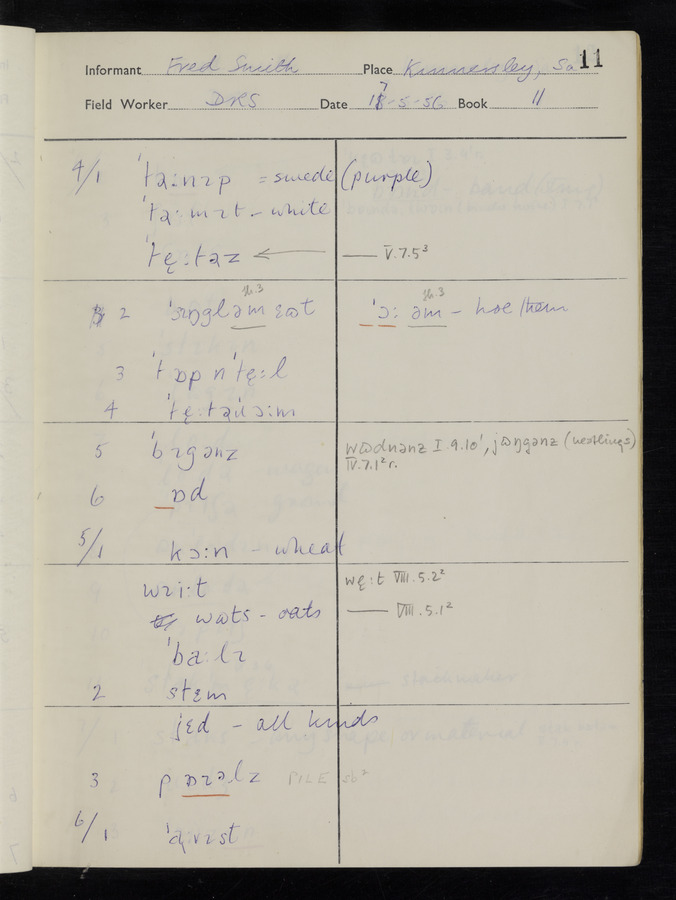 11
Informant Fred Smith Place Kinnersley, Sa
Field Worker DRS Date 17-5-56 Book 11
4/1 ˈtəːnɪp = swede (purple)
ˈtəːmɪt - white
ˈtę:təz ← —— V.7.5³
2 ˈsɪŋgləm ɛʊt ˈɔː əm - hoe them
3 tɒp n ˈtęːl
4
5 ˈbɪgənz wʊdnənz I.9.10¹, jʊŋgənz (nestlings)
IV.7.1² r.
6 ɒd
5/1 kɔːn - wheat
wɪiːt węːt VIII.5.2²
wʊts - oats —— VIII.5.1²
ˈbaːlɪ
2 stɛm
jɛd - all kinds
3 pɒɪəlz PILE sb²
6/1 ˈaːvɪst